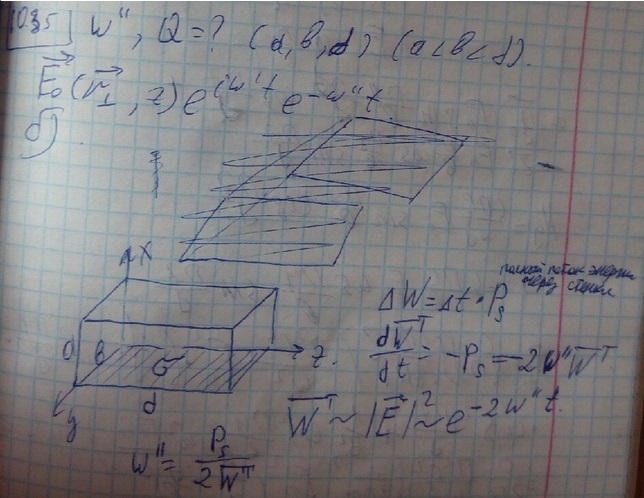 1035 ω'', Q = ? (a, b, d) (a < b < d).
E₀(r⊥, z) e^{iω't} e^{-ω''t}
б)
x
полный поток энергии
через стенки
ΔW = Δt · P_s
a b σ z.
dW^T/dt = -P_s = -2ω''W^T
d
y
W^T ~ |E|² ~ e^{-2ω''t}.
ω'' = P_s / 2W^T